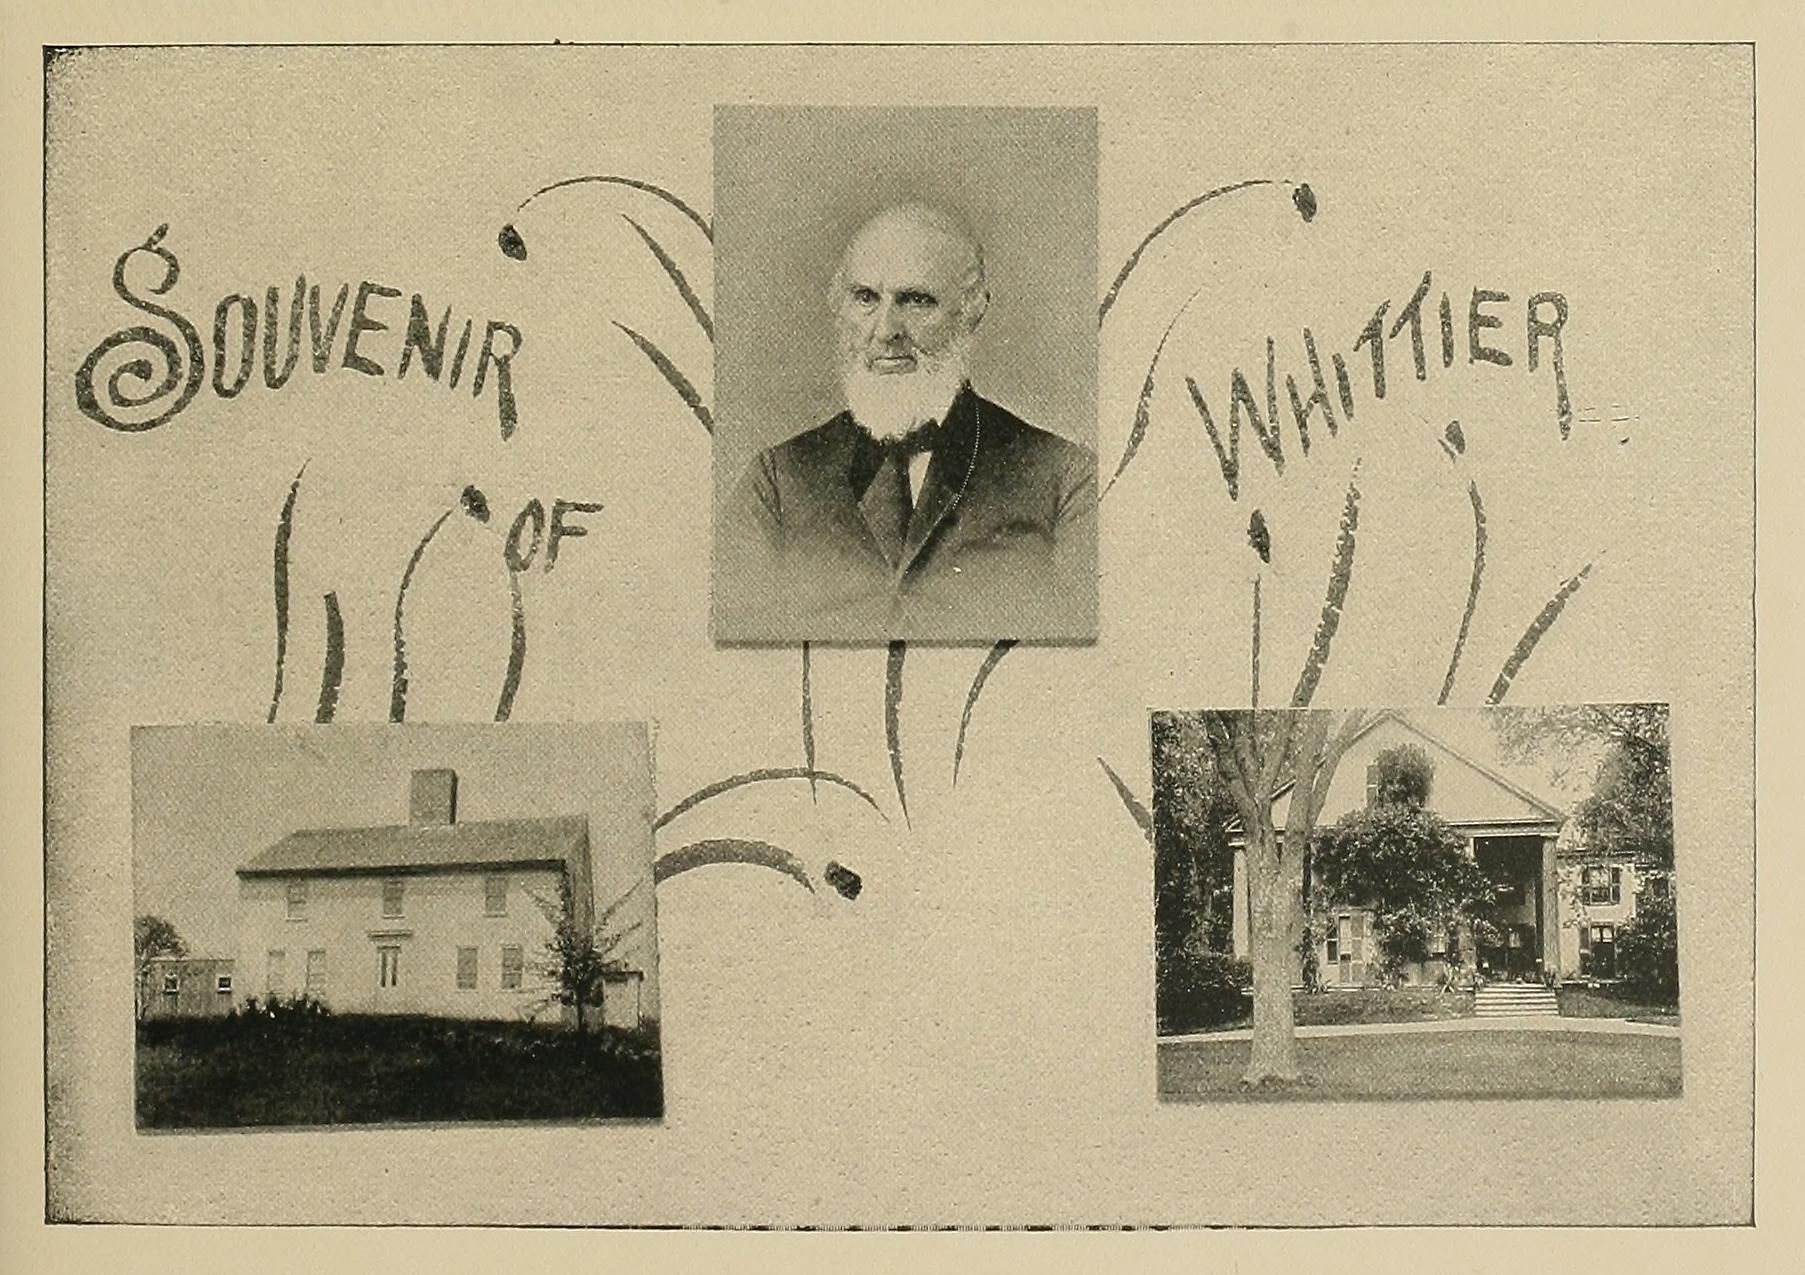 SOUVENIR
OF
WHITTIER